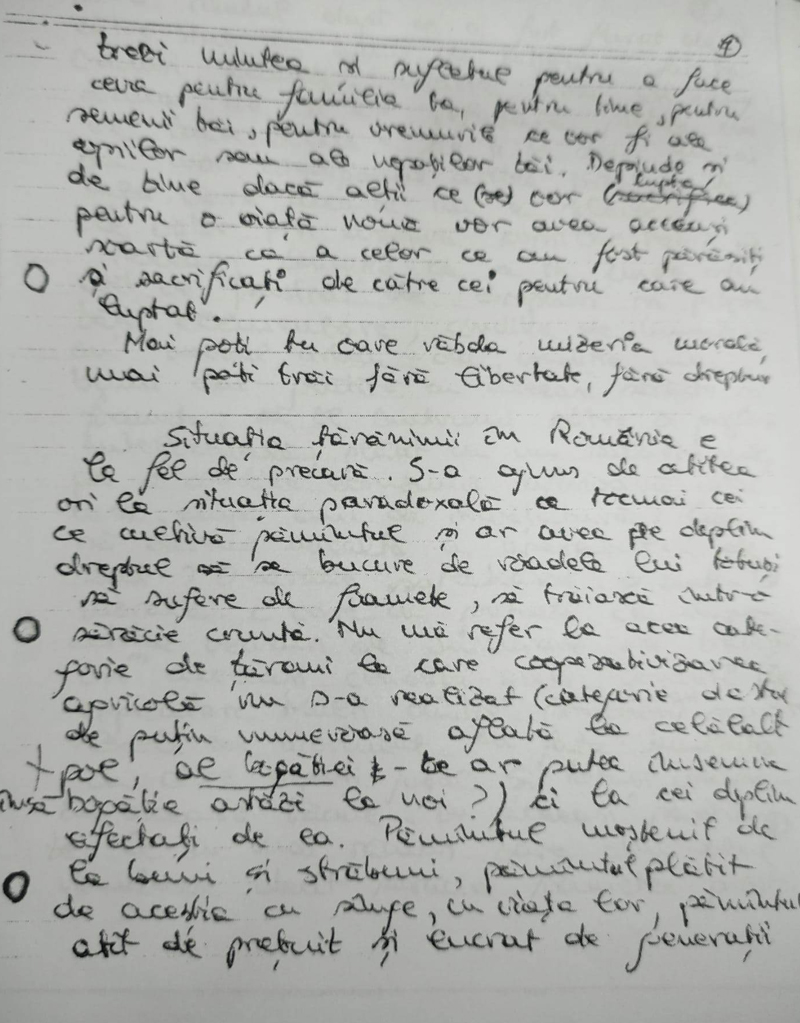 9
trezi mintea și sufletul pentru a face
ceva pentru familia ta, pentru tine, pentru
semenii tăi, pentru vremurile ce vor fi ale
copiilor sau ale nepoților tăi. Depinde și
de tine dacă alții ce (se) vor (sacrifica) lupta
pentru o viață nouă vor avea aceeași
soartă ca a celor ce au fost părăsiți
și sacrificați de către cei pentru care au
luptat.
Mai poți tu oare răbda mizeria morală,
mai poți trăi fără libertate, fără drepturi
Situația țărănimii în România e
la fel de precară. S-a ajuns de atîtea
ori la situația paradoxală ca tocmai cei
ce cultivă pămîntul și ar avea pe deplin
dreptul să se bucure de roadele lui totuși
să sufere de foamete, să trăiască într-o
sărăcie cruntă. Nu mă refer la acea cate-
gorie de țărani la care cooperativizarea
agricolă nu s-a realizat (categorie destul
de puțin numeroasă aflată la celălalt
pol, al bogăției - ce ar putea însemna
însă bogăție astăzi la noi?) ci la cei deplin
afectați de ea. Pămîntul moștenit de
la buni și străbuni, pămîntul plătit
de aceștia cu sînge, cu viața lor, pămîntul
atît de prețuit și lucrat de generații